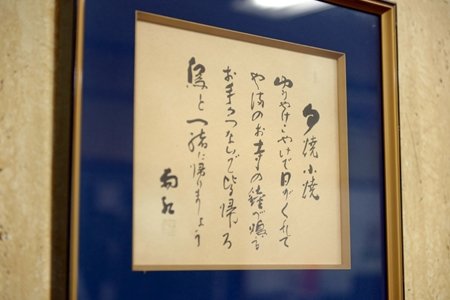 夕焼小焼
ゆうやけこやけで日がくれて
や満のお寺の鐘が鳴る
お手々つないで皆帰ろ
烏と一緒に帰りましょう
雨紅